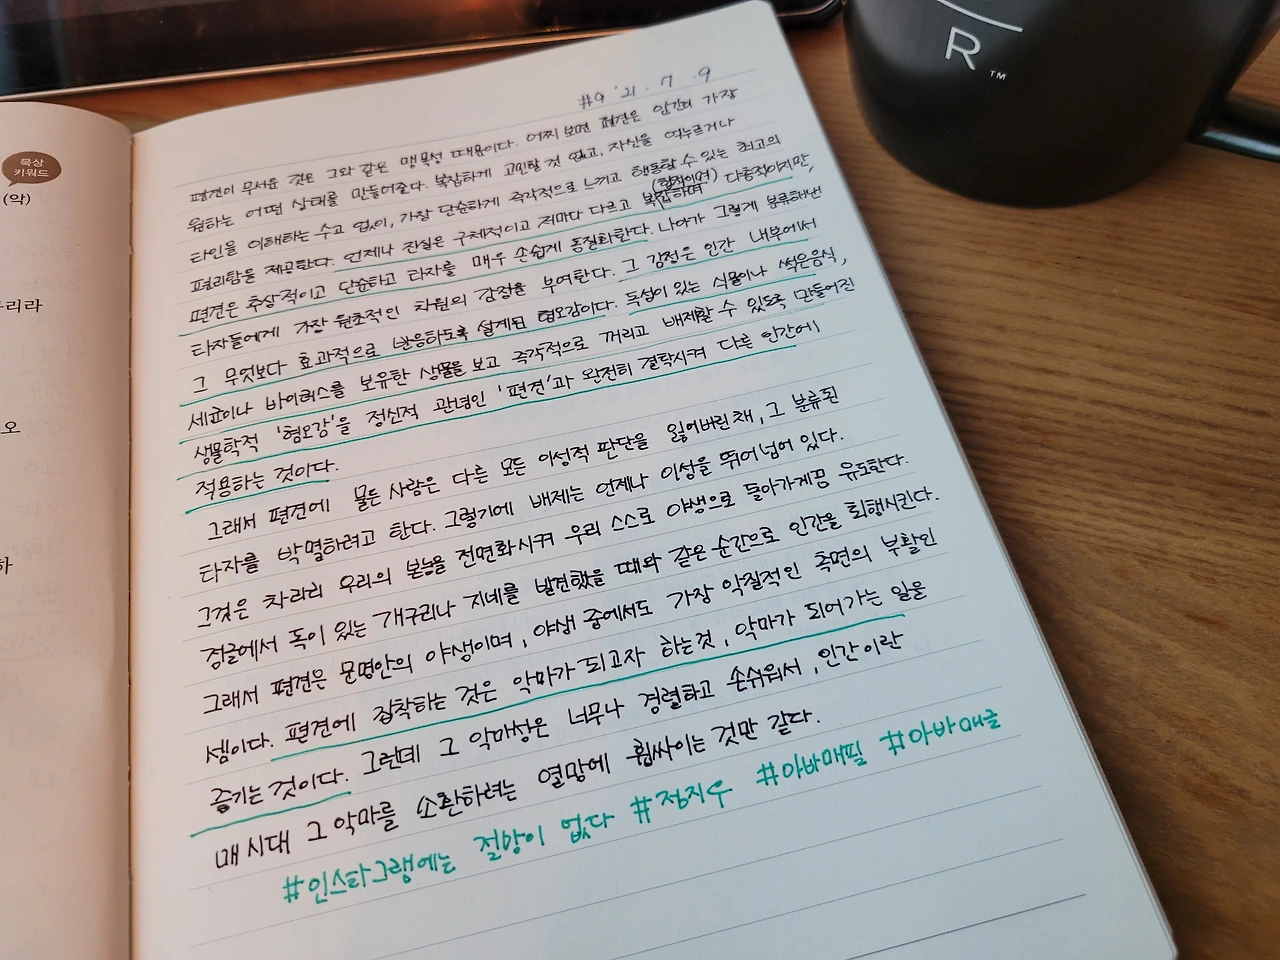 R™
묵상
키워드
(악)
우리라
오
하
#9 '21. 7. 9
편견이 무서운 것은 그와 같은 맹목성 때문이다. 어찌 보면 편견은 인간의 가장
원하는 어떤 상태를 만들어준다. 복잡하게 고민할 것 없고, 자신을 억누르거나
타인을 이해하는 수고 없이, 가장 단순하게 즉각적으로 느끼고 행동할 수 있는 최고의
편리함을 제공한다. 언제나 진실은 구체적이고 저마다 다르고 복잡하며 (협적이며) 다층적이지만,
편견은 추상적이고 단순하고 타자를 매우 손쉽게 동질화한다. 나아가 그렇게 분류해낸
타자들에게 가장 원초적인 차원의 감정을 부여한다. 그 감정은 인간 내부에서
그 무엇보다 효과적으로 반응하도록 설계된 혐오감이다. 독성이 있는 식물이나 썩은음식,
세균이나 바이러스를 보유한 생물을 보고 즉각적으로 꺼리고 배제할 수 있도록 만들어진
생물학적 '혐오감'을 정신적 관념인 '편견'과 완전히 결탁시켜 다른 인간에게
적용하는 것이다.
그래서 편견에 물든 사람은 다른 모든 이성적 판단을 잃어버린채, 그 분류된
타자를 박멸하려고 한다. 그렇기에 배제는 언제나 이성을 뛰어넘어 있다.
그것은 차라리 우리의 본능을 전면화시켜 우리 스스로 야생으로 돌아가게끔 유도한다.
정글에서 독이 있는 개구리나 지네를 발견했을 때와 같은 순간으로 인간을 퇴행시킨다.
그래서 편견은 문명안의 야생이며, 야생 중에서도 가장 악질적인 측면의 부활인
셈이다. 편견에 집착하는 것은 악마가 되고자 하는것, 악마가 되어가는 일을
즐기는 것이다. 그런데 그 악마성은 너무나 강렬하고 손쉬워서, 인간이란
매 시대 그 악마를 소환하려는 열망에 휩싸이는 것만 같다.
#인스타그램에는 절망이 없다 #정지우 #아바매필 #아바매글